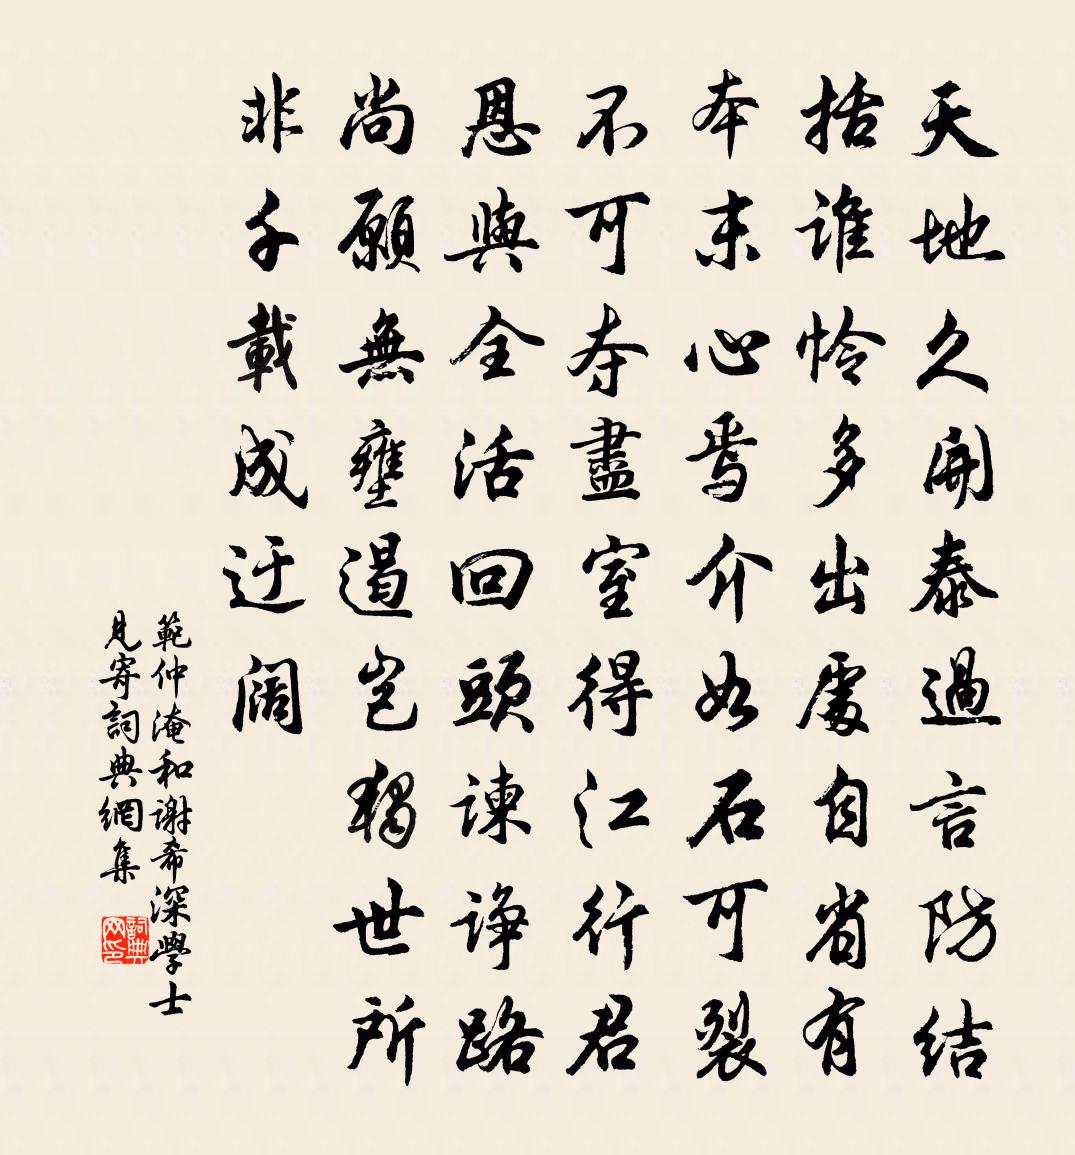 天地久開泰過言防結
括誰怜多出處自省有
本末心焉介如石可裂
不可夺盡室得江行君
恩與全活回頭諫诤路
尚願無壅遏豈獨世所
非千載成迂阔
範仲淹和谢希深學士
見寄詞典網集
詞典网印